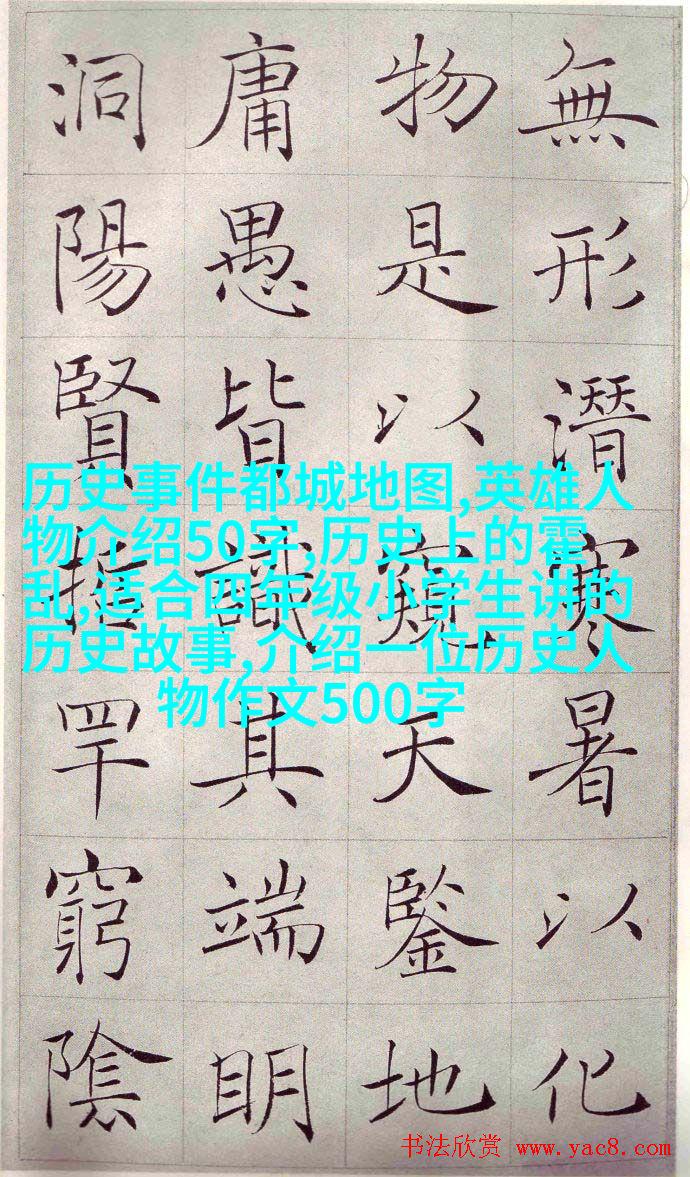 無形潛寒暑以化
物是以窺天鑒地
庸愚皆識其端明
洞陽賢哲罕窮陰
历史事件都城地图,英雄人
物介绍50字,历史上的霍
乱,适合四年级小学生讲的
历史故事,介绍一位历史人
物作文500字
书法欣赏 www.yac8.com